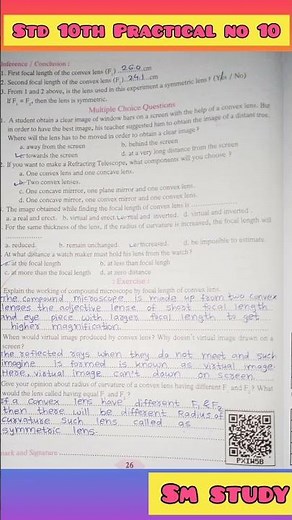 Std 10th Practical no 10
Inference / Conclusion :
1. First focal length of the convex lens (F₁) cm
2. Second focal length of the convex lens (F₂) 24.1 cm
3. From 1 and 2 above, is the lens used in this experiment a symmetric lens ? (Yes / No)
If F₁ = F₂, then the lens is symmetric.
Multiple Choice Questions
1. A student obtain a clear image of window bars on a screen with the help of a convex lens. But
in order to have the best image, his teacher suggested him to obtain the image of a distant tree.
Where will the lens has to be moved in order to obtain a clear image ?
a. away from the screen b. behind the screen
c. towards the screen d. at a very long distance from the screen
2. If you want to make a Refracting Telescope, what components will you choose ?
a. One convex lens and one concave lens.
b. Two convex lenses.
c. One concave mirror, one plane mirror and one convex lens.
d. One concave mirror, one convex mirror and one convex lens.
The image obtained while finding the focal length of convex lens is
a. a real and erect b. virtual and erect c. real and inverted d. virtual and inverted
For the same thickness of the lens, if the radius of curvature is increased, the focal length will
a. reduced b. remain unchanged c. increased d. be impossible to estimate
At what distance a watch maker must hold his lens from the watch ?
a. at the focal length b. at less than focal length
c. at more than the focal length d. at zero distance
Exercise
Explain the working of compound microscope by focal length of convex lens.
The compound microscope is made up from two convex
lenses the adjective lense of short focal length
and eye piece with larger focal length to get
higher magnification.
When would virtual image produced by convex lens ? Why doesn't virtual image drawn on a
screen ?
the reflected rays when they do not meet and such
imagine is formed is known as virtual image
here virtual image can't down on screen
Give your opinion about radius of curvature of a convex lens having different F₁ and F₂ ? What
would the lens called having equal F₁ and F₂ ?
If a convex lens have different F₁ & F₂
then there will be different Radius of
curvature such lens called as
symmetric lens.
Remark and Signature
26
PXIW5B
Sm study